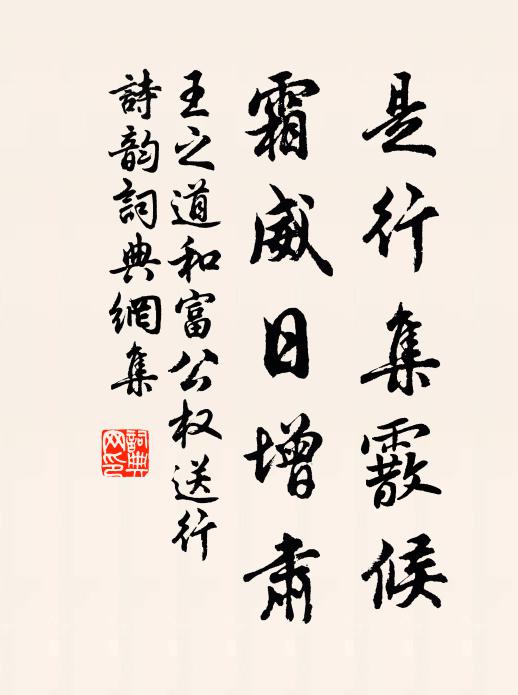 是行集霰候
霜威日增肃
王之道和富公权送行
詩韵詞典網集
詞典
网印